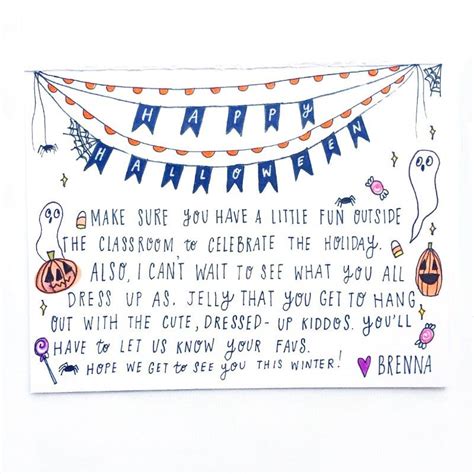 HAPPY
HALLOWEEN
MAKE SURE YOU HAVE A LITTLE FUN OUTSIDE
THE CLASSROOM to CELEBRATE THE HOLIDAY.
ALSO, I CAN'T WAIT TO SEE WHAT YOU ALL
DRESS UP AS. JELLY THAT YOU GET TO HANG
OUT WITH THE CUTE, DRESSED-UP KIDDOS. YOU'LL
HAVE to LET US KNOW YOUR FAVS.
HOPE WE GET to SEE YOU THIS WINTER! BRENNA